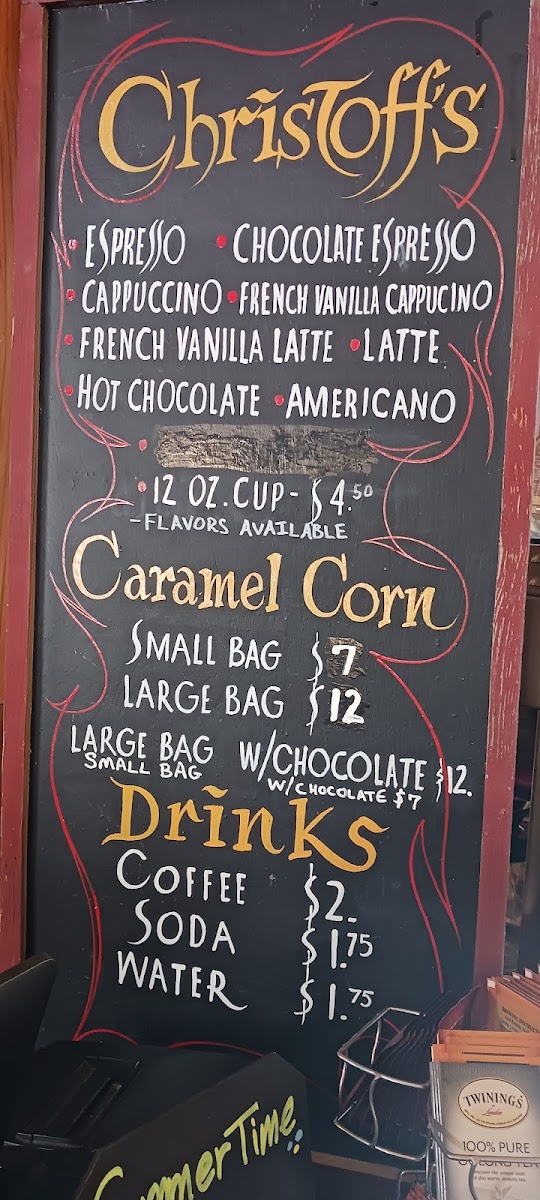 Christoff's
• ESPRESSO • CHOCOLATE ESPRESSO
• CAPPUCCINO • FRENCH VANILLA CAPPUCINO
• FRENCH VANILLA LATTE • LATTE
• HOT CHOCOLATE • AMERICANO
• 12 OZ. CUP - $4.50
- FLAVORS AVAILABLE
Caramel Corn
SMALL BAG $7
LARGE BAG $12
LARGE BAG W/CHOCOLATE $12.
SMALL BAG W/CHOCOLATE $7
Drinks
COFFEE $2.
SODA $1.75
WATER $1.75
SummerTime
TWININGS
London
100% PURE
OOLONG TEA